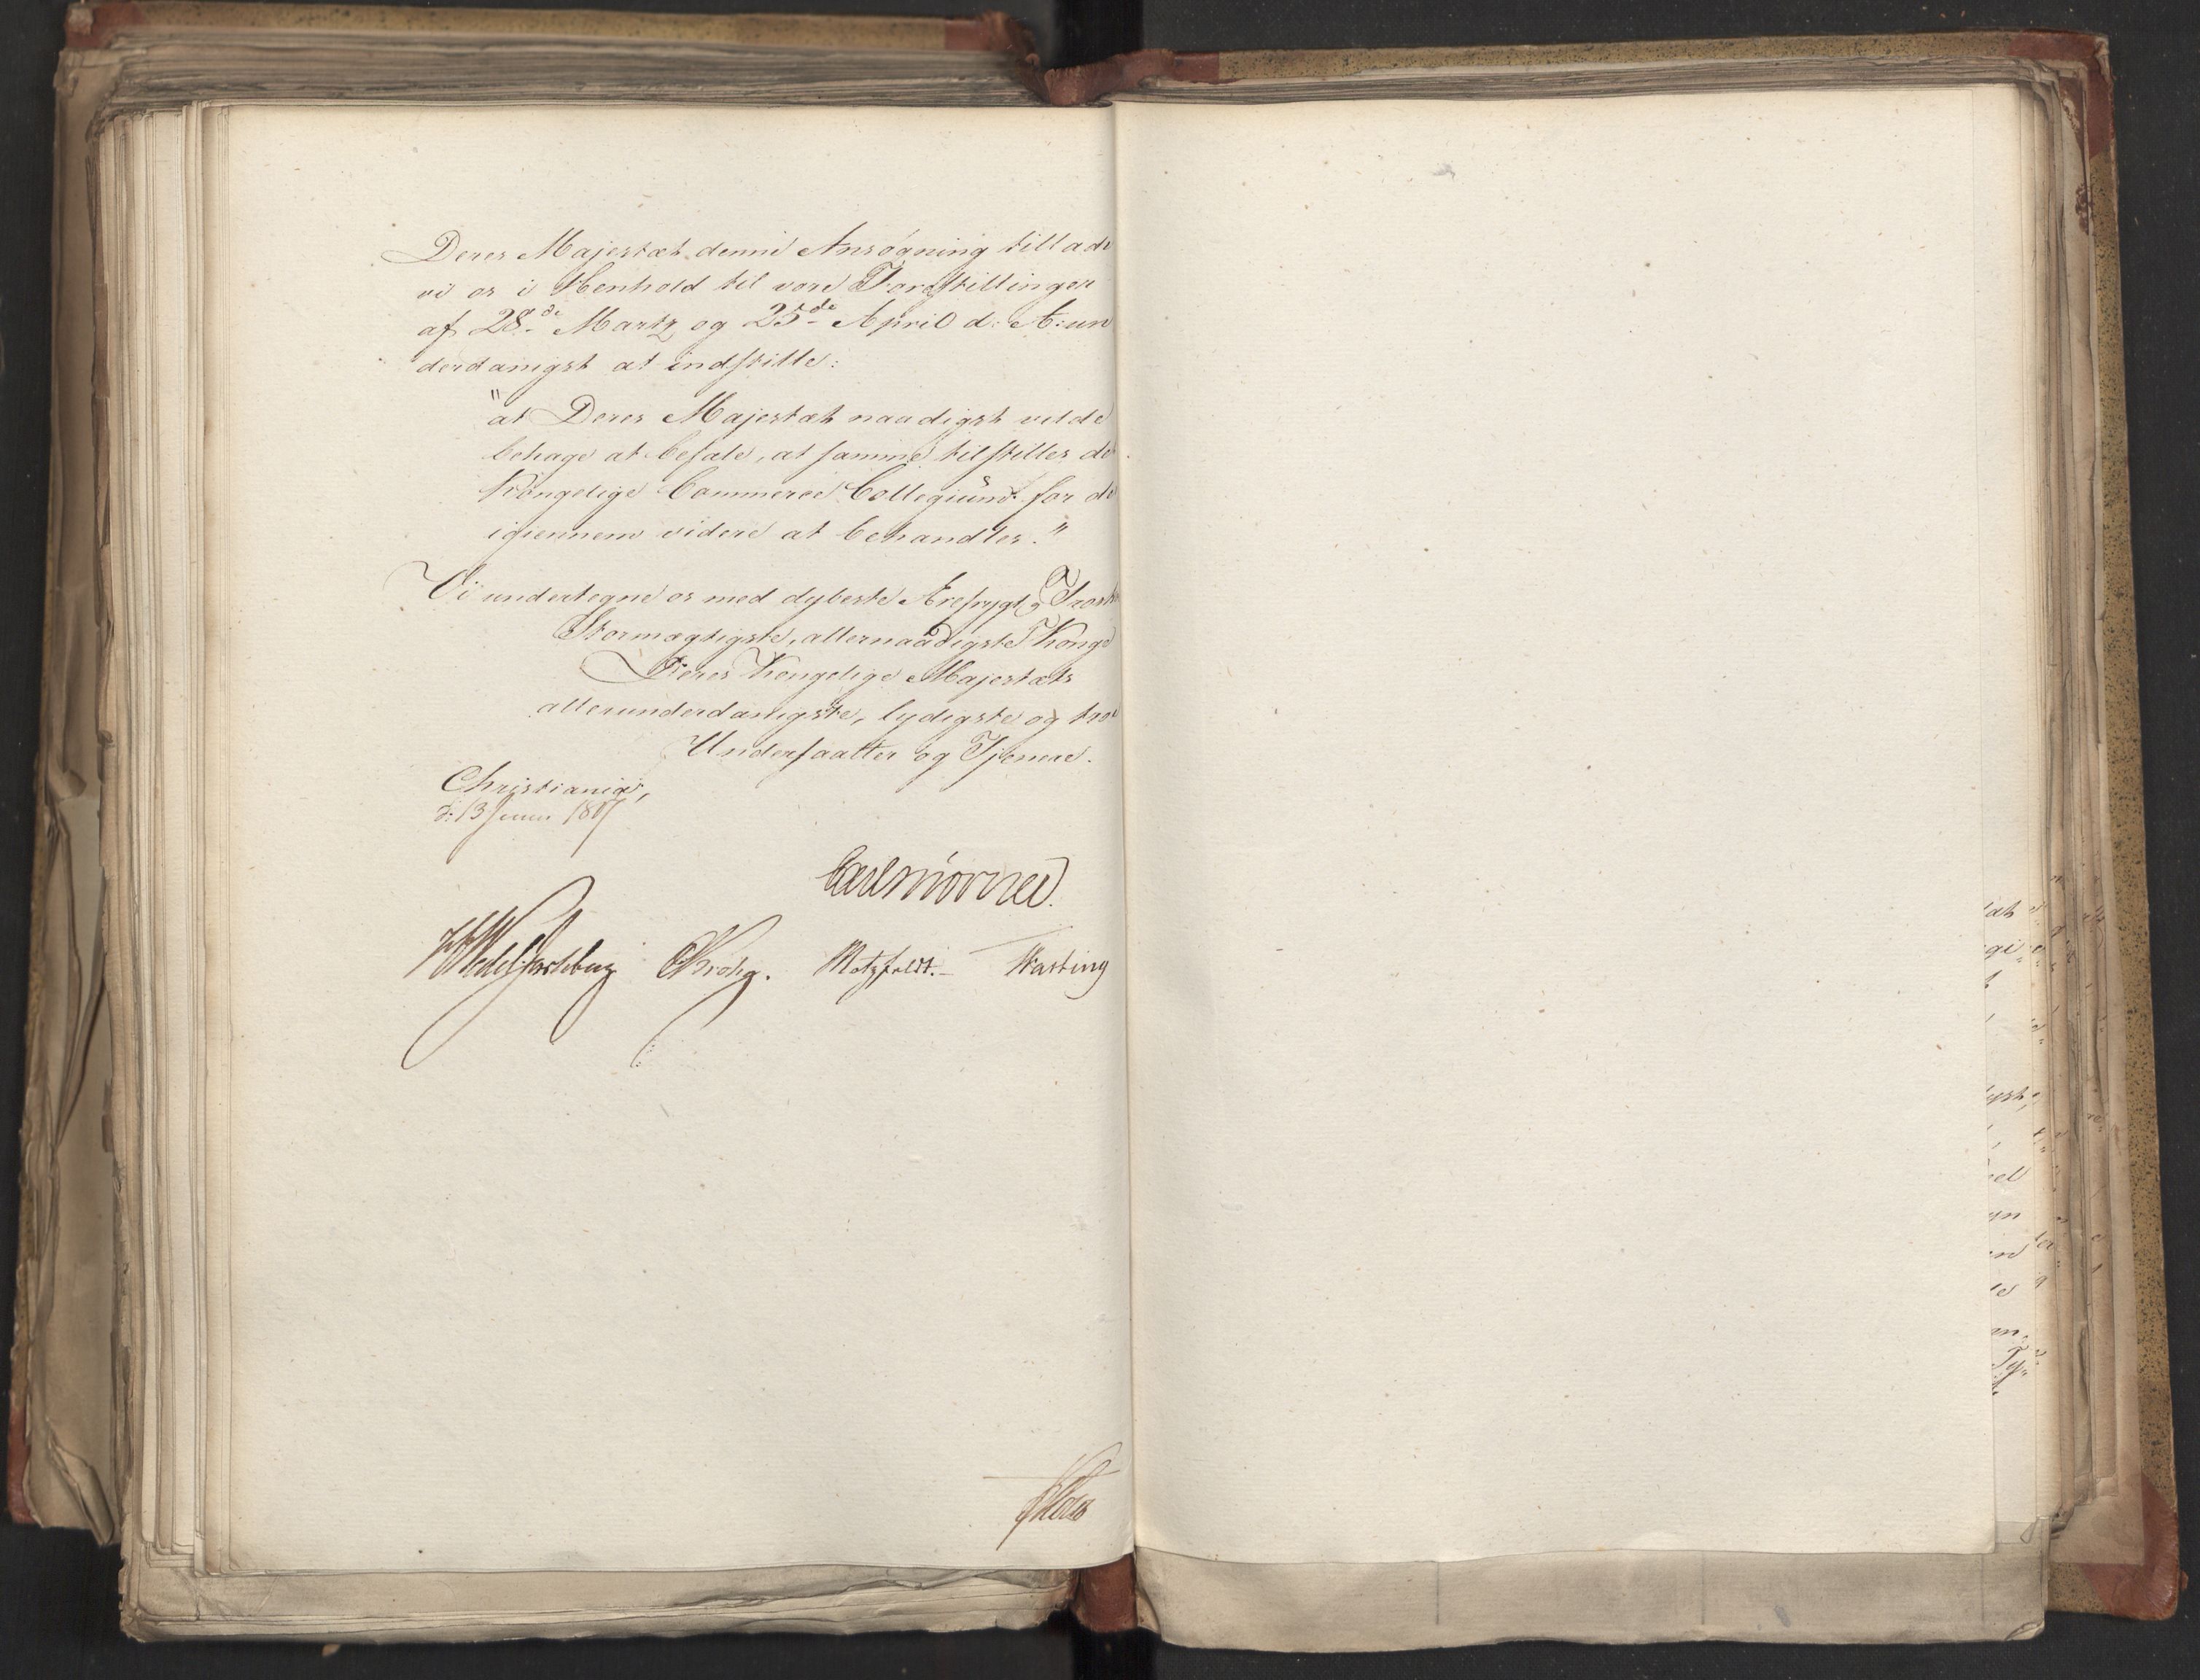 Deres Majestæt denne Ansøgning tillade
vi os i Henhold til vore Forestillinger
af 28de Martz og 25de April d: A: un
derdanigst at indstille:
"at Deres Majestæt naadigst vilde
behage at befale, at samme tilstilles de
Kongelige Commerce Collegium for de
igiennem videre at behandles."
Vi undertegne os med dybeste Ærefrygt og Trosk
Stormægtigste, allernaadigste Konge
Deres Kongelige Majestæts
allerunderdanigste, lydigste og troe
Undersaatter og Tjenere.
Christiania,
d: 13 Junii 1817
Carl Mörner.
Wedel Jarlsberg Krohg. Motzfeldt. Hasting